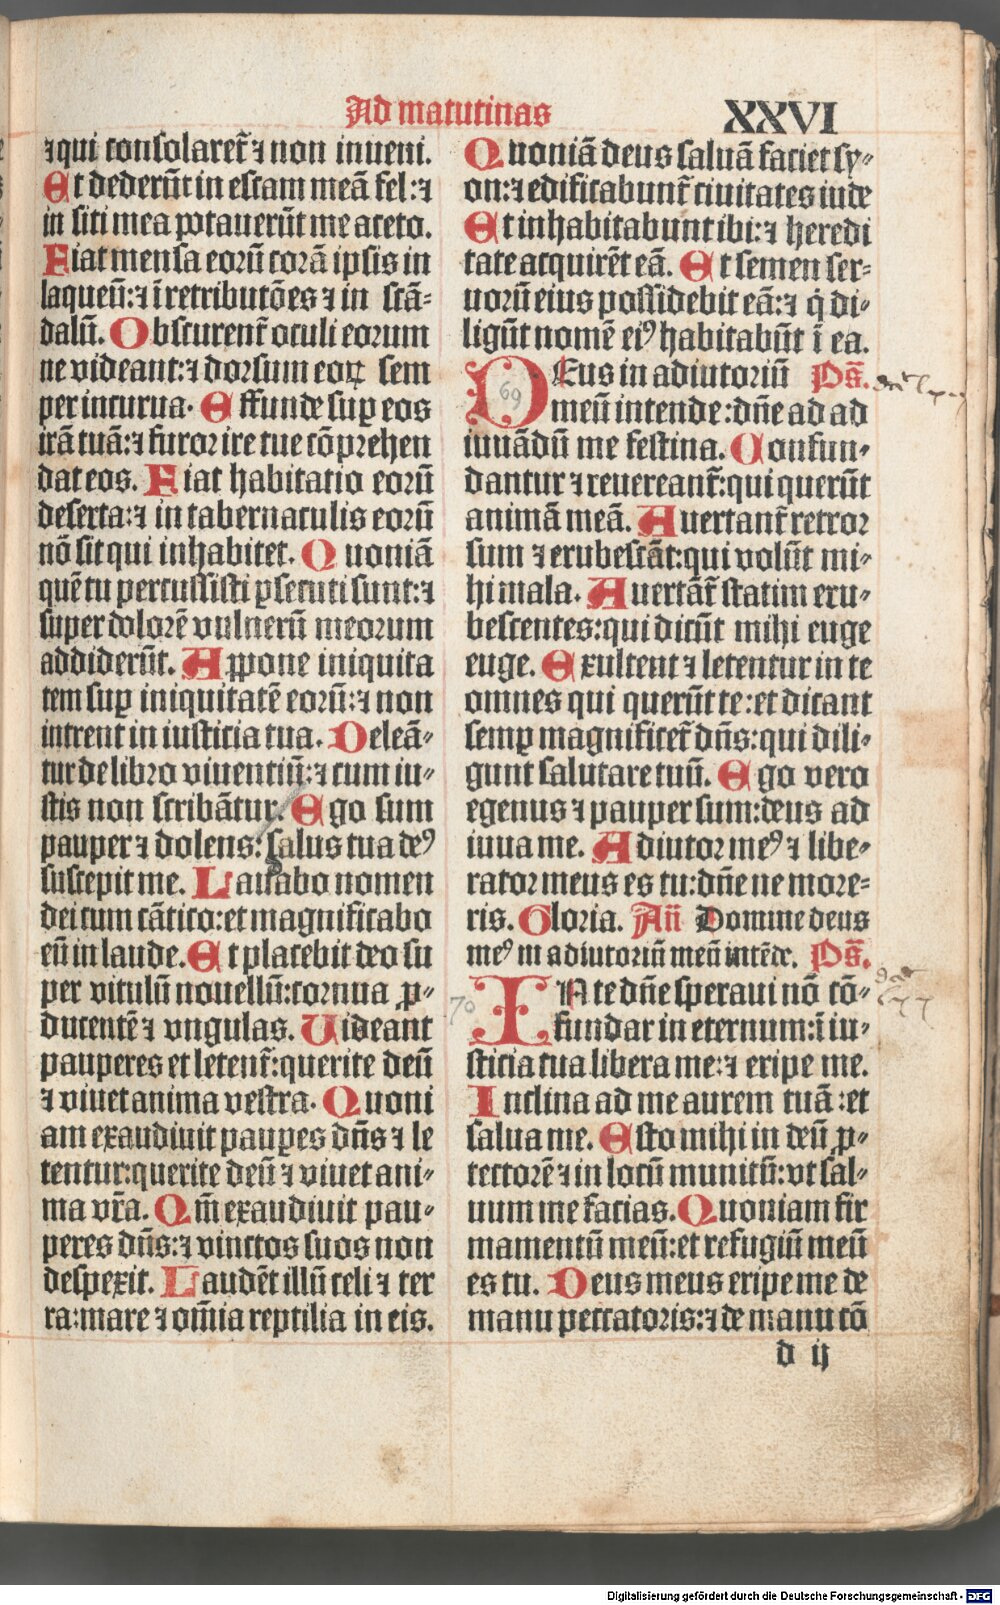 Ad matutinas
XXVI
⁊ qui consolaret̄ ⁊ non inueni.
Et dederūt in escam meā fel: ⁊
in siti mea potauerūt me aceto.
Fiat mensa eorū corā ipsis in
laqueū: ⁊ ī retributōes ⁊ in scā-
dalū. Obscurent̄ oculi eorum
ne videant: ⁊ dorsum eoꝝ sem
per incurua. Effunde suꝑ eos
irā tuā: ⁊ furor ire tue cōprehen
dat eos. Fiat habitatio eorū
deserta: ⁊ in tabernaculis eorū
nō sit qui inhabitet. Quoniā
quē tu percussisti ꝑsecuti sunt: ⁊
super dolorē vulnerū meorum
addiderūt. Appone iniquita
tem suꝑ iniquitatē eorū: ⁊ non
intrent in iusticia tua. Deleā-
tur de libro viuentiū: ⁊ cum iu-
stis non scribātur. Ego sum
pauper ⁊ dolens: salus tua deꝰ
suscepit me. Laudabo nomen
dei cum cātico: et magnificabo
eū in laude. Et placebit deo su
per vitulū nouellū: cornua ꝓ-
ducentē ⁊ vngulas. Uideant
pauperes et letent̄: querite deū
⁊ viuet anima vestra. Quoni
am exaudiuit pauꝑes dn̄s ⁊ le
tentur: querite deū ⁊ viuet ani-
ma vr̄a. Qm̄ exaudiuit pau-
peres dn̄s: ⁊ vinctos suos non
despexit. Laudēt illū celi ⁊ ter
ra: mare ⁊ om̄ia reptilia in eis.
Quoniā deus saluā faciet sy-
on: ⁊ edificabunt̄ ciuitates iude
Et inhabitabunt ibi: ⁊ heredi
tate acquirēt eā. Et semen ser-
uorū eius possidebit eā: ⁊ q̇ di-
ligūt nomē eiꝰ habitabūt ī ea.
DEus in adiutoriū Ps̄.
69
meū intende: dn̄e ad ad
iuuādū me festina. Confun-
dantur ⁊ reuereant̄: qui querūt
animā meā. Auertant̄ retror
sum ⁊ erubescāt: qui volūt mi-
hi mala. Auertāt̄ statim eru-
bescentes: qui dicūt mihi euge
euge. Exultent ⁊ letentur in te
omnes qui querūt te: et dicant
semꝑ magnificet̄ dn̄s: qui dili-
gunt salutare tuū. Ego vero
egenus ⁊ pauper sum: deus ad
iuua me. Adiutor meꝰ ⁊ libe-
rator meus es tu: dn̄e ne more-
ris. Gloria. Añ Domine deus
meꝰ in adiutoriū meū intēde. Ps̄.
70
IN te dn̄e speraui nō cō-
fundar in eternum: ī iu-
sticia tua libera me: ⁊ eripe me.
Inclina ad me aurem tuā: et
salua me. Esto mihi in deū ꝓ-
tectorē ⁊ in locū munitū: vt sal-
uum me facias. Quoniam fir
mamentū meū: et refugiū meū
es tu. Deus meus eripe me de
manu peccatoris: ⁊ de manu cō
d ij
Digitalisierung gefördert durch die Deutsche Forschungsgemeinschaft - DFG